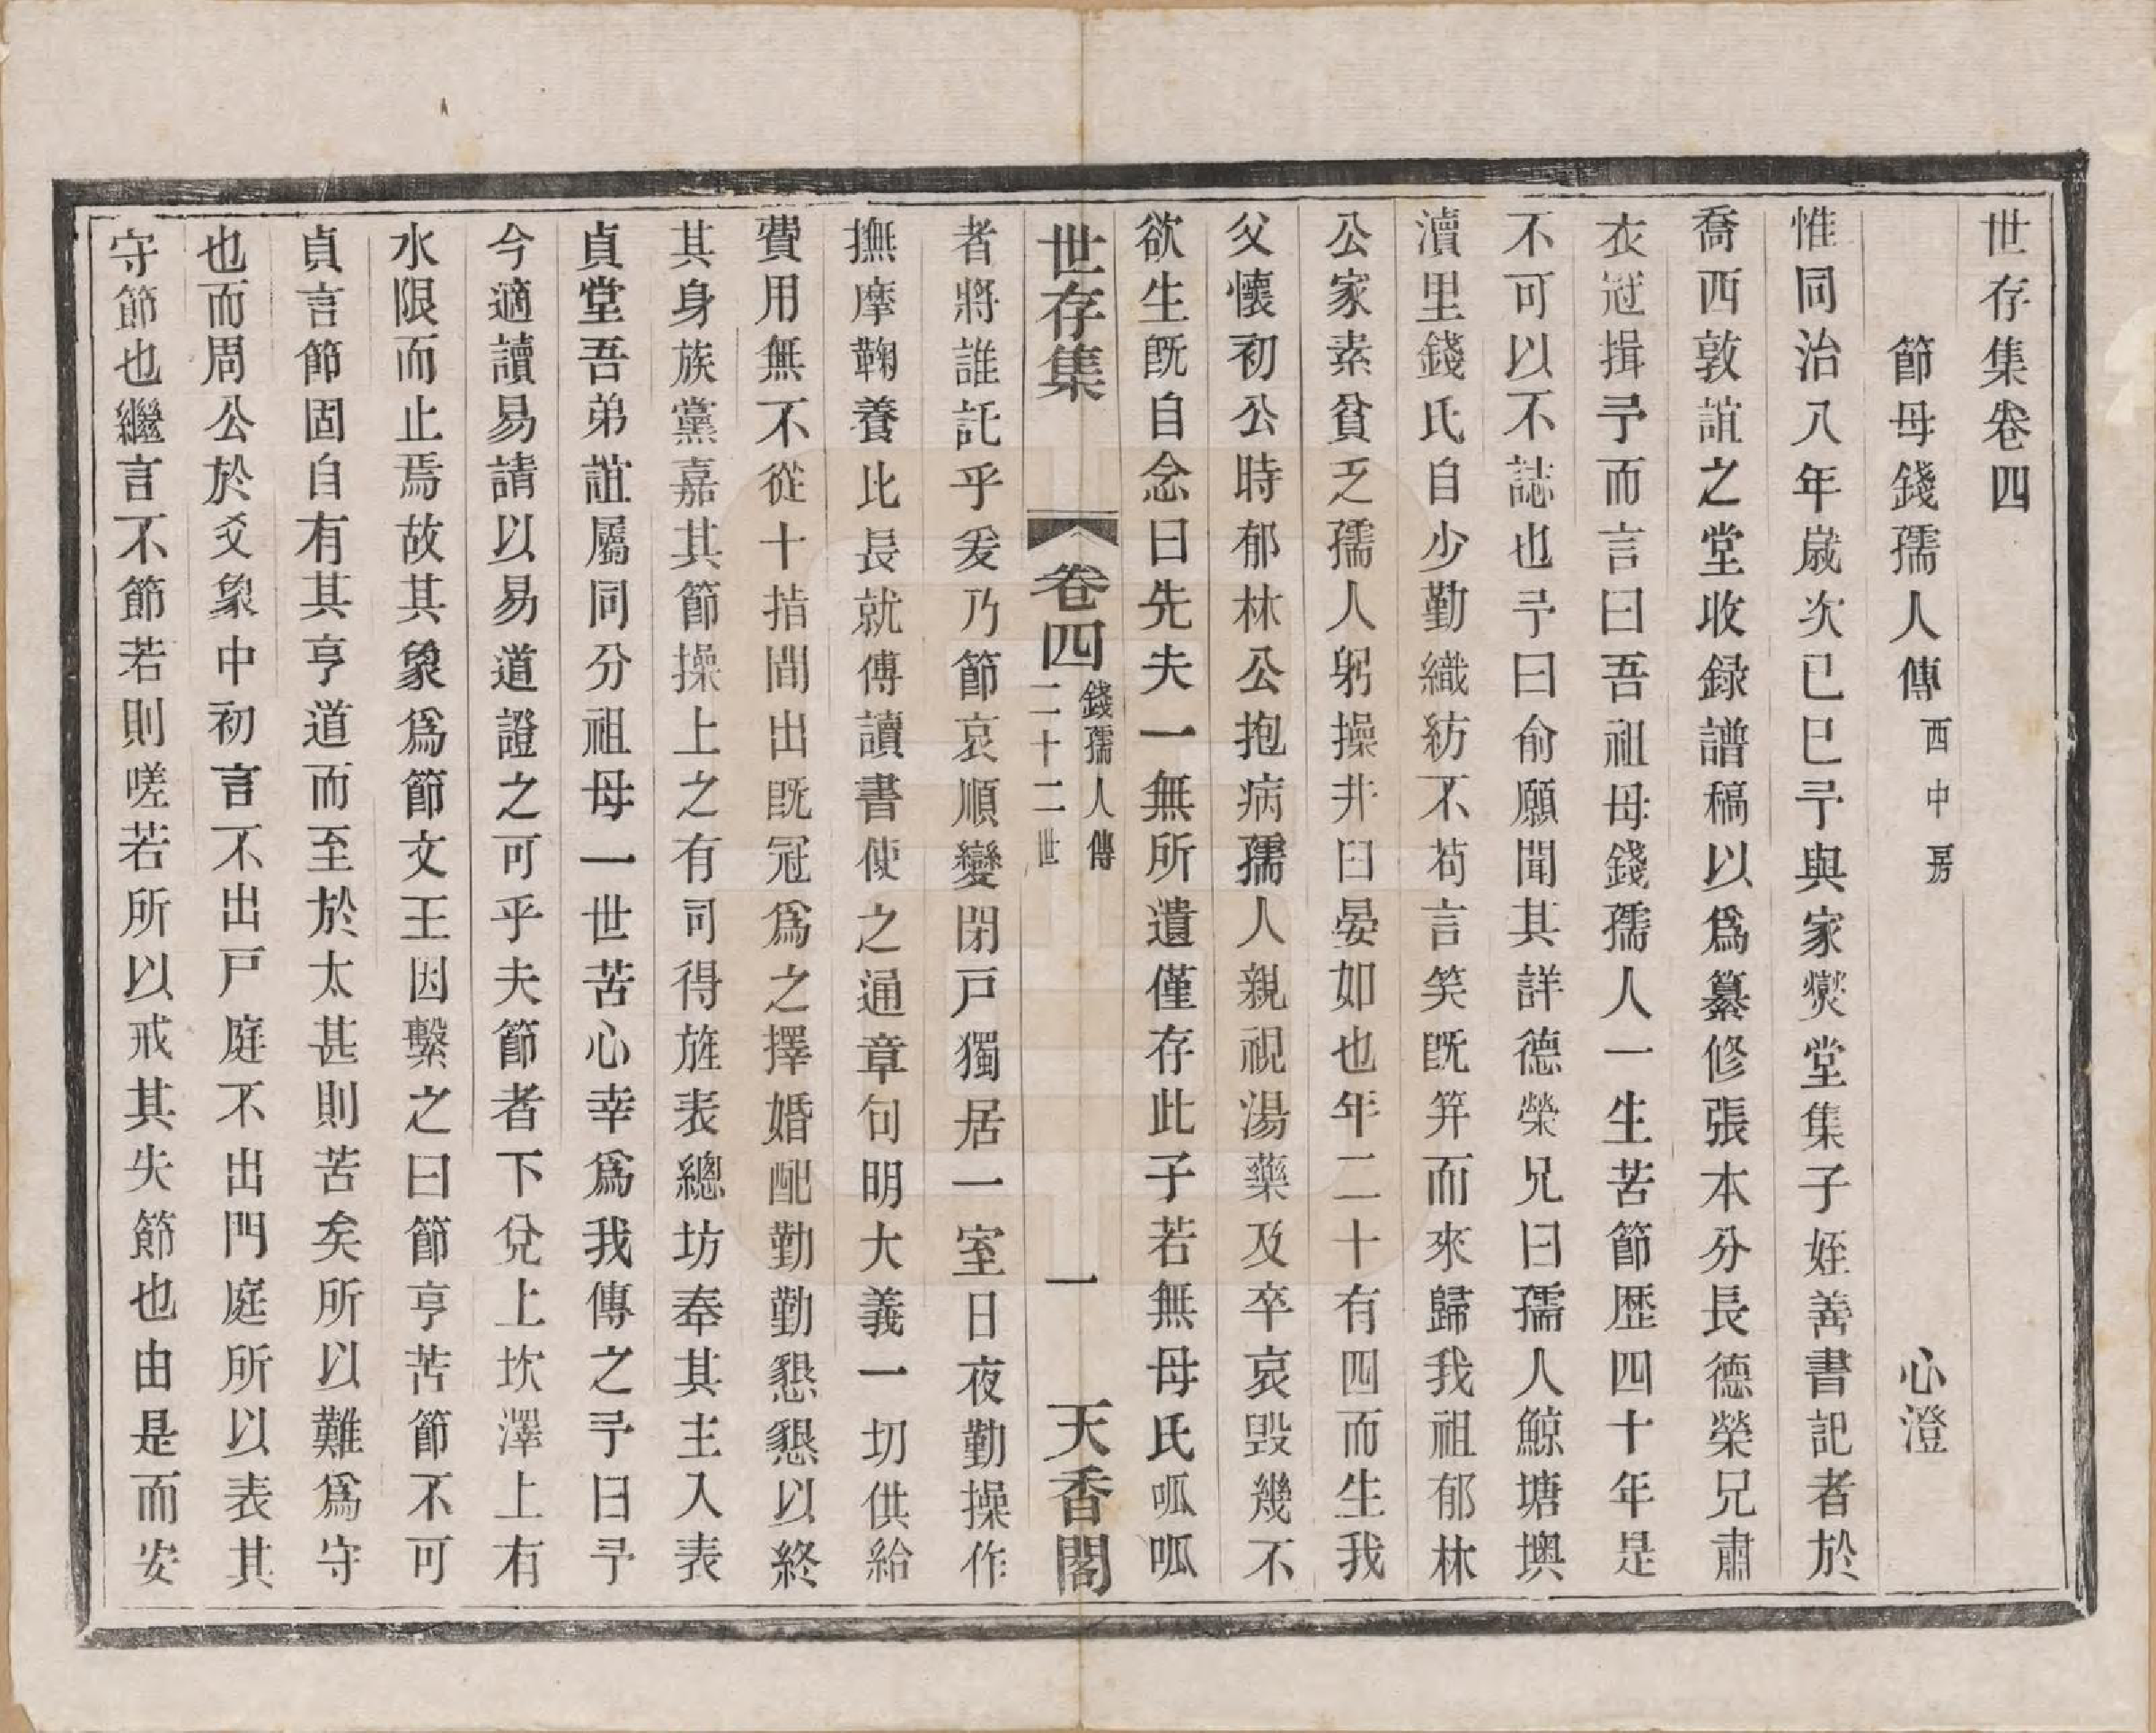 世存集卷四
節母錢孺人傳西中房 心澄
惟同治八年歲次已巳予與家爕堂集子姪善書記者於
喬西敦誼之堂收録譜稿以爲纂修張本分長德榮兄肅
衣冠揖予而言曰吾祖母錢孺人一生苦節歷四十年是
不可以不誌也予曰俞願聞其詳德榮兄曰孺人鯨塘墺
瀆里錢氏自少勤織紡不苟言笑既筓而來歸我祖郁林
公家素貧乏孺人躬操井臼晏如也年二十有四而生我
父懷初公時郁林公抱病孺人親視湯藥及卒哀毀幾不
欲生既自念曰先夫一無所遺僅存此子若無母氏呱呱
世存集 卷四 錢孺人傳 二十二世 一 天香閣
者將誰託乎爰乃節哀順變閉戸獨居一室日夜勤操作
撫摩鞠養比長就傅讀書使之通章句明大義一切供給
費用無不從十指間出既冠爲之擇婚配勤勤懇懇以終
其身族黨嘉其節操上之有司得旌表總坊奉其主入表
貞堂吾弟誼屬同分祖母一世苦心幸爲我傳之予曰予
今適讀易請以易道證之可乎夫節者下兌上坎澤上有
水限而止焉故其象爲節文王因繫之曰節亨苦節不可
貞言節固自有其亨道而至於太甚則苦矣所以難爲守
也而周公於爻象中初言不出戸庭不出門庭所以表其
守節也繼言不節若則嗟若所以戒其失節也由是而安